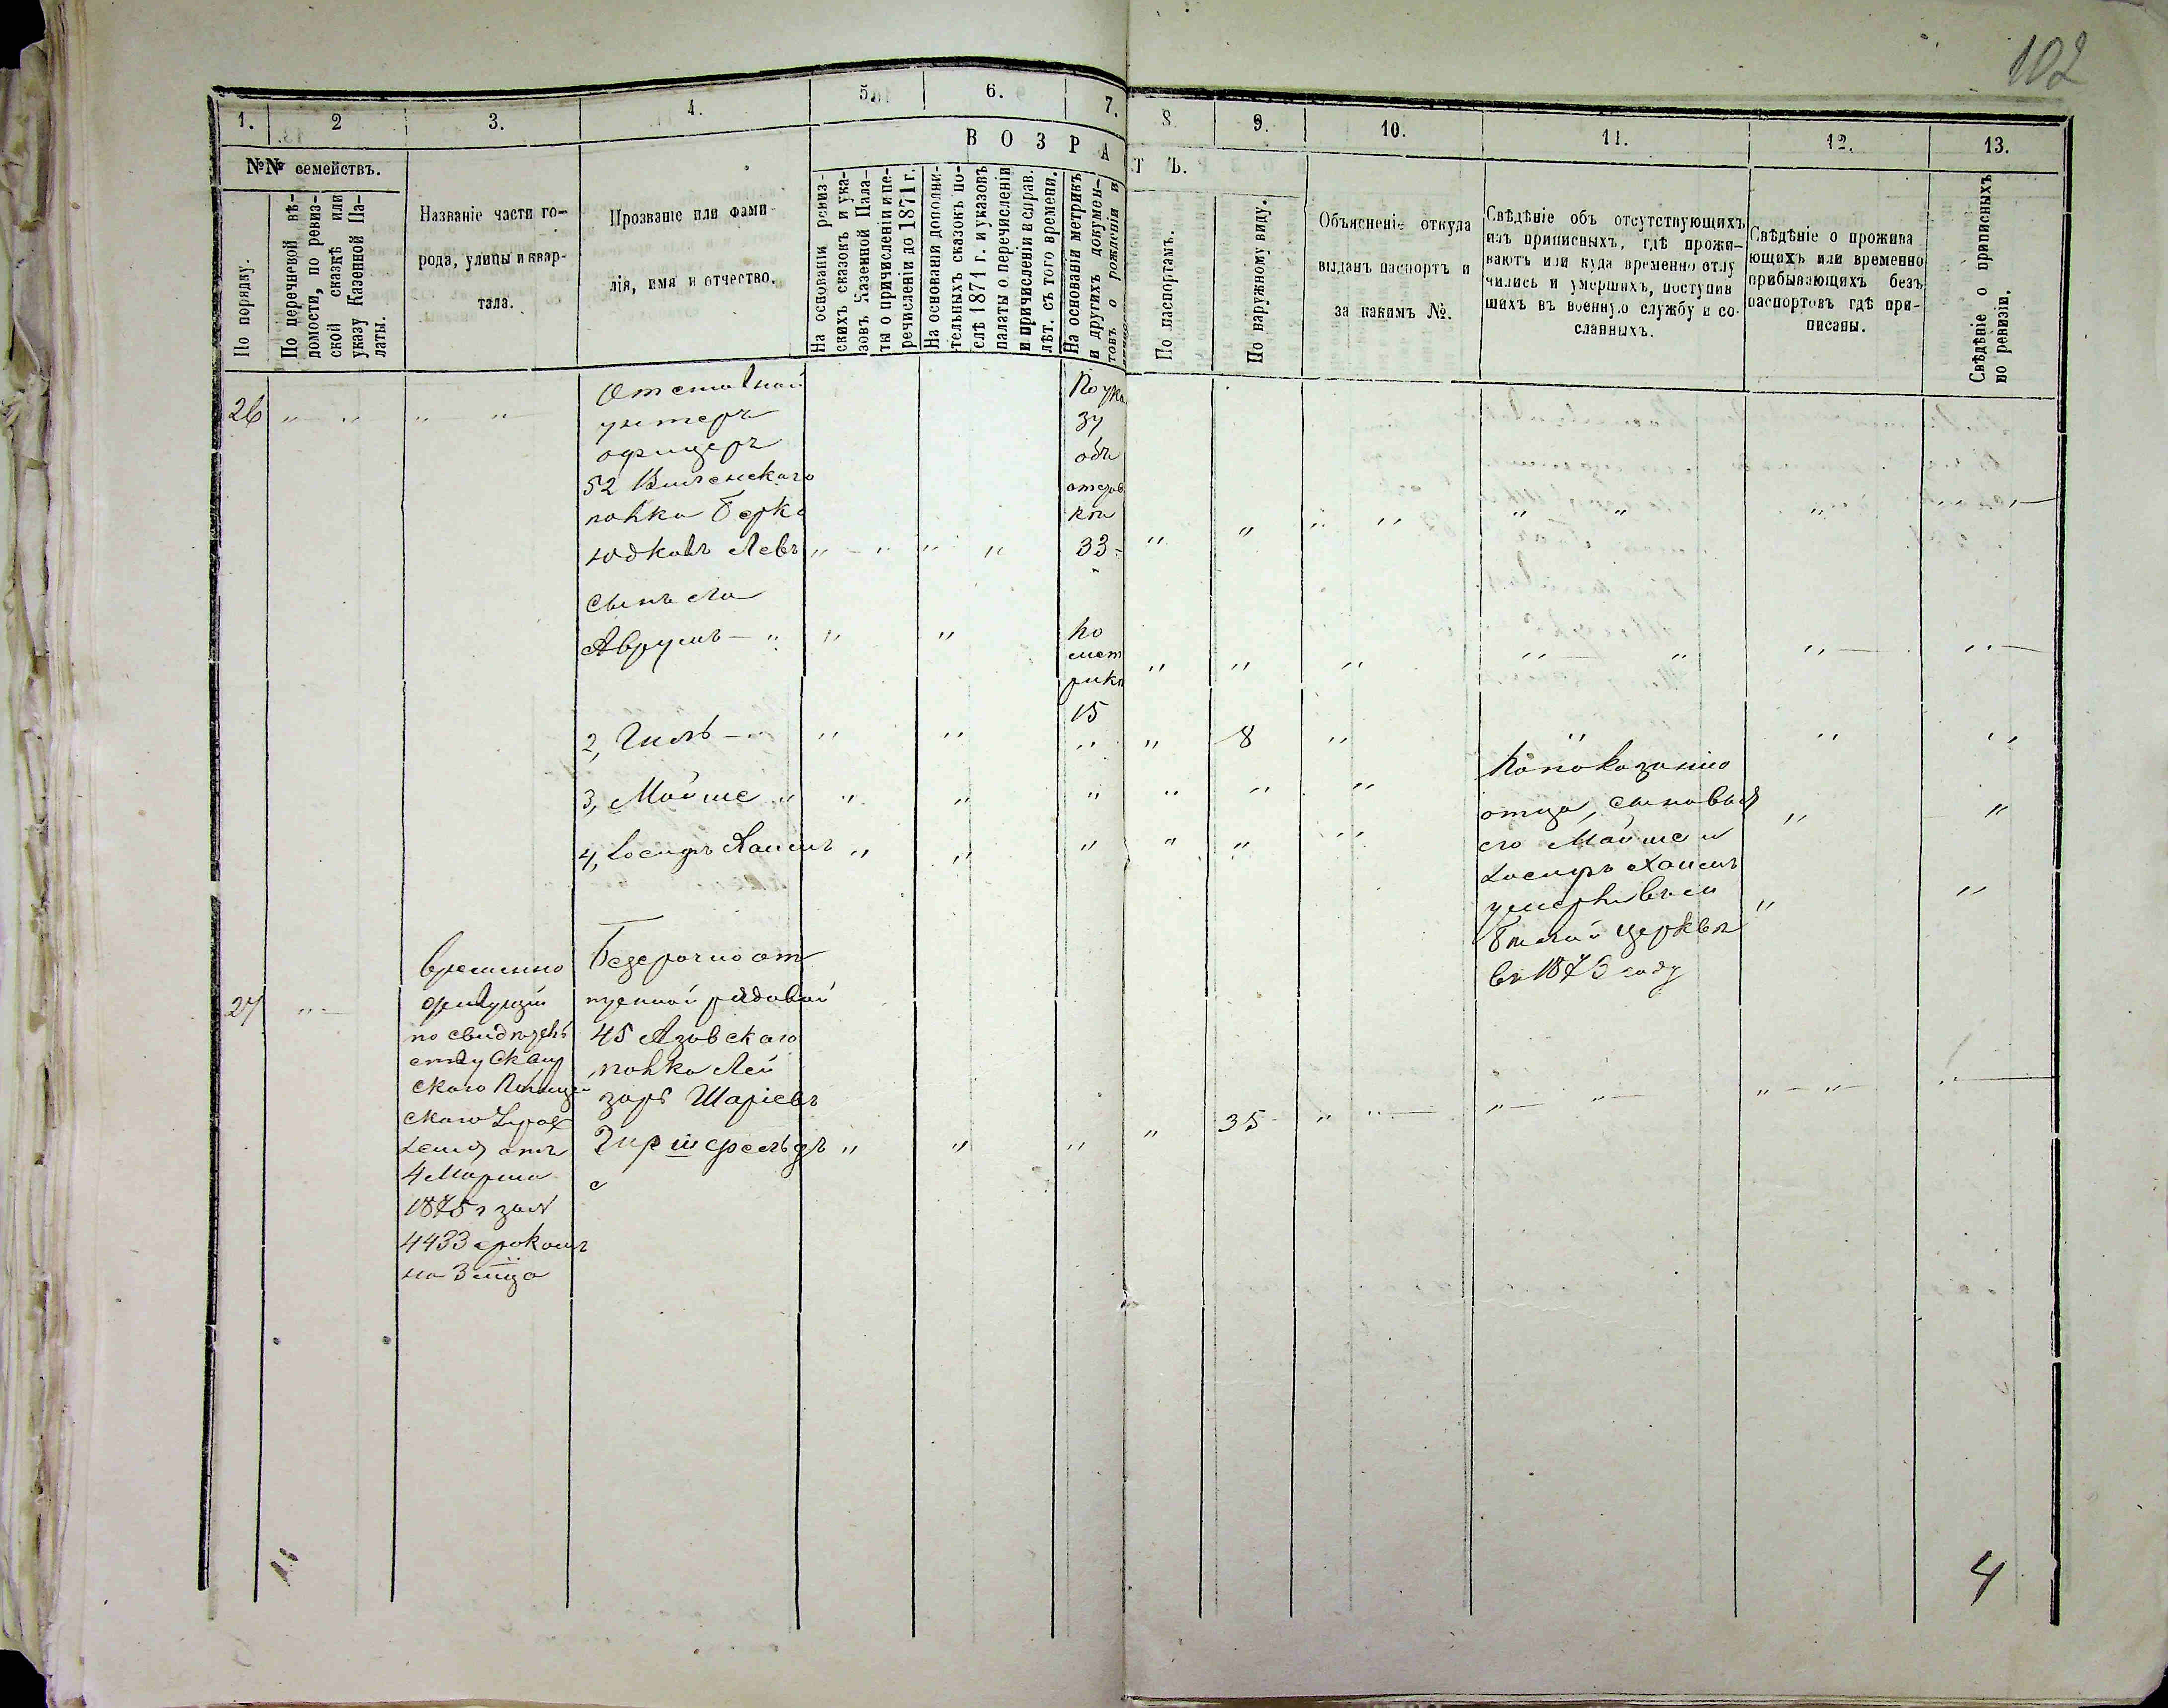 102
1. 2 3. 4. 5. 6. 7. 8. 9. 10. 11. 12. 13.
№№ семействъ.
По порядку.
По перечневой вѣ-
домости, по ревиз-
ской сказкѣ или
указу Казенной Па-
латы.
Названіе части го-
рода, улицы и квар-
тала.
Прозваніе или фами-
лія, имя и отчество.
ВОЗРАСТЪ.
На основаніи ревиз-
скихъ сказокъ и ука-
зовъ Казенной Пала-
ты о причисленіи и пе-
речисленіи до 1871 г.
На основаніи дополни-
тельныхъ сказокъ по-
слѣ 1871 г. и указовъ
палаты о перечисленіи
и причисленіи и справ.
лѣт. съ того времени.
На основаніи метрикъ
и другихъ докумен-
товъ о рожденіи и
По паспортамъ.
По наружному виду.
Объясненіе откуда
выданъ паспортъ и
за какимъ №.
Свѣдѣніе объ отсутствующихъ
изъ приписныхъ, гдѣ прожи-
ваютъ или куда временно отлу
чились и умершихъ, поступив
шихъ въ военную службу и со-
сланныхъ.
Свѣдѣніе о прожива
ющихъ или временно
прибывающихъ безъ
паспортовъ гдѣ при-
писаны.
Свѣдѣніе о приписныхъ
по ревизіи.
26 " " " "
Отставной
унтеръ
офицеръ
52 Виленскаго
полка Берко
Юдковъ Левъ " " " "
По ука
зу
объ
отстав
ки
33 " " " " " " " " "
Сынъ его
Аврумъ " " "
по
мет
рики
15
" " " " " " "
2, Гиль " " " " " 8 " " " "
3, Мойше " " " " " " " "
4, Іосифъ Хаимъ " " " " " "
По показанію
отца, сыновья
его Мойше и
Іосифъ Хаимъ
умерли въ м
Бѣлой Церквѣ
въ 1873 году
27 "
временно
по свидѣтель
ству Сквир
скаго Полицей
скаго Управ
ленія отъ
4 Марта
1875 г за №
4433 срокомъ
на 3 мца
Безсрочно от
пускной рядовой
45 Азовскаго
полка Лей
зоръ Шаріевъ
Гиршфельдъ " " " " 35 " " " " " " "
4